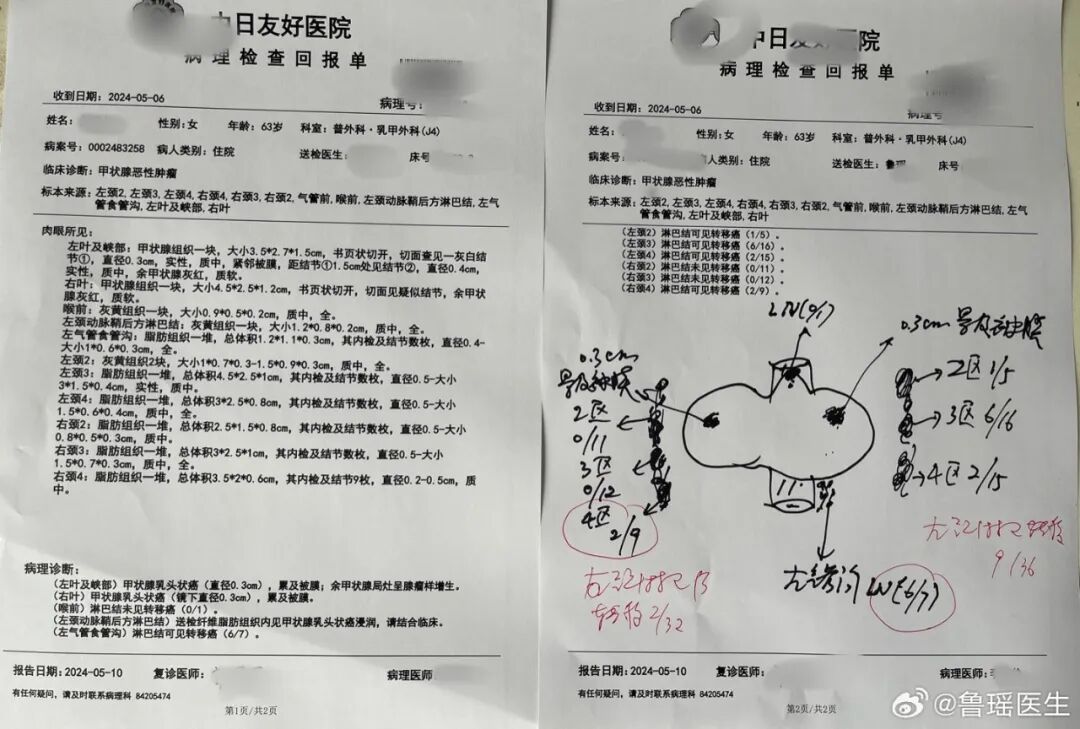 中日友好医院
病理检查回报单
收到日期：2024-05-06
病理号：
姓名：
性别：女
年龄：63岁
科室：普外科·乳甲外科(J4)
病案号：0002483258
病人类别：住院
送检医生：
床号
临床诊断：甲状腺恶性肿瘤
标本来源：左颈2,左颈3,左颈4,右颈4,右颈3,右颈2,气管前,喉前,左颈动脉鞘后方淋巴结,左气
管食管沟,左叶及峡部,右叶
肉眼所见：
左叶及峡部：甲状腺组织一块，大小3.5*2.7*1.5cm，书页状切开，切面查见一灰白结
节①，直径0.3cm，实性，质中，紧邻被膜，距结节①1.5cm处见结节②，直径0.4cm，
实性，质中，余甲状腺灰红，质软。
右叶：甲状腺组织一块，大小4.5*2.5*1.2cm，书页状切开，切面见疑似结节，余甲状
腺灰红，质软。
喉前：灰黄组织一块，大小0.9*0.5*0.2cm，质中，全。
左颈动脉鞘后方淋巴结：灰黄组织一块，大小1.2*0.8*0.2cm，质中，全。
左气管食管沟：脂肪组织一堆，总体积1.2*1.1*0.3cm，其内检及结节数枚，直径0.4-
大小1*0.6*0.3cm，全。
左颈2：灰黄组织2块，大小1*0.7*0.3-1.5*0.9*0.3cm，质中，全。
左颈3：脂肪组织一堆，总体积4.5*2.5*1cm，其内检及结节数枚，直径0.5-大小
3*1.5*0.4cm，实性，质中。
左颈4：脂肪组织一堆，总体积3*2.5*0.8cm，其内检及结节数枚，直径0.5-大小
1.5*0.6*0.4cm，质中，全。
右颈2：脂肪组织一堆，总体积2.5*1.5*0.8cm，其内检及结节数枚，直径0.5-大小
0.8*0.5*0.3cm，质中。
右颈3：脂肪组织一堆，总体积3*2.5*1cm，其内检及结节数枚，直径0.5-大小
1.5*0.7*0.3cm，质中，全。
右颈4：脂肪组织一堆，总体积3.5*2*0.6cm，其内检及结节9枚，直径0.2-0.5cm，质
中。
病理诊断：
（左叶及峡部）甲状腺乳头状癌（直径0.3cm），累及被膜；余甲状腺局灶呈腺瘤样增生。
（右叶）甲状腺乳头状癌（镜下直径0.3cm），累及被膜。
（喉前）淋巴结未见转移癌（0/1）。
（左颈动脉鞘后方淋巴结）送检纤维脂肪组织内见甲状腺乳头状癌浸润，请结合临床。
（左气管食管沟）淋巴结可见转移癌（6/7）。
报告日期：2024-05-10
复诊医师：
病理医师
有任何疑问，请及时联系病理科 84205474
第1页/共2页
中日友好医院
病理检查回报单
收到日期：2024-05-06
病理号
姓名：
性别：女
年龄：63岁
科室：普外科·乳甲外科(J4)
病案号：
病人类别：住院
送检医生：鲁瑶
床号
临床诊断：甲状腺恶性肿瘤
标本来源：左颈2,左颈3,左颈4,右颈4,右颈3,右颈2,气管前,喉前,左颈动脉鞘后方淋巴结,左气
管食管沟,左叶及峡部,右叶
（左颈2）淋巴结可见转移癌（1/5）。
（左颈3）淋巴结可见转移癌（6/16）。
（左颈4）淋巴结可见转移癌（2/15）。
（右颈2）淋巴结未见转移癌（0/11）。
（右颈3）淋巴结未见转移癌（0/12）。
（右颈4）淋巴结可见转移癌（2/9）。
LN(0/1)
0.3cm
0.3cm
2区 1/5
3区 6/16
4区 2/15
2区
0/11
3区
0/12
4区
2/9
转移 2/32
9/36
LN(6/7)
报告日期：2024-05-10
复诊医师：
病理医师：
有任何疑问，请及时联系病理科 84205474
第2页/共2页
@鲁瑶医生